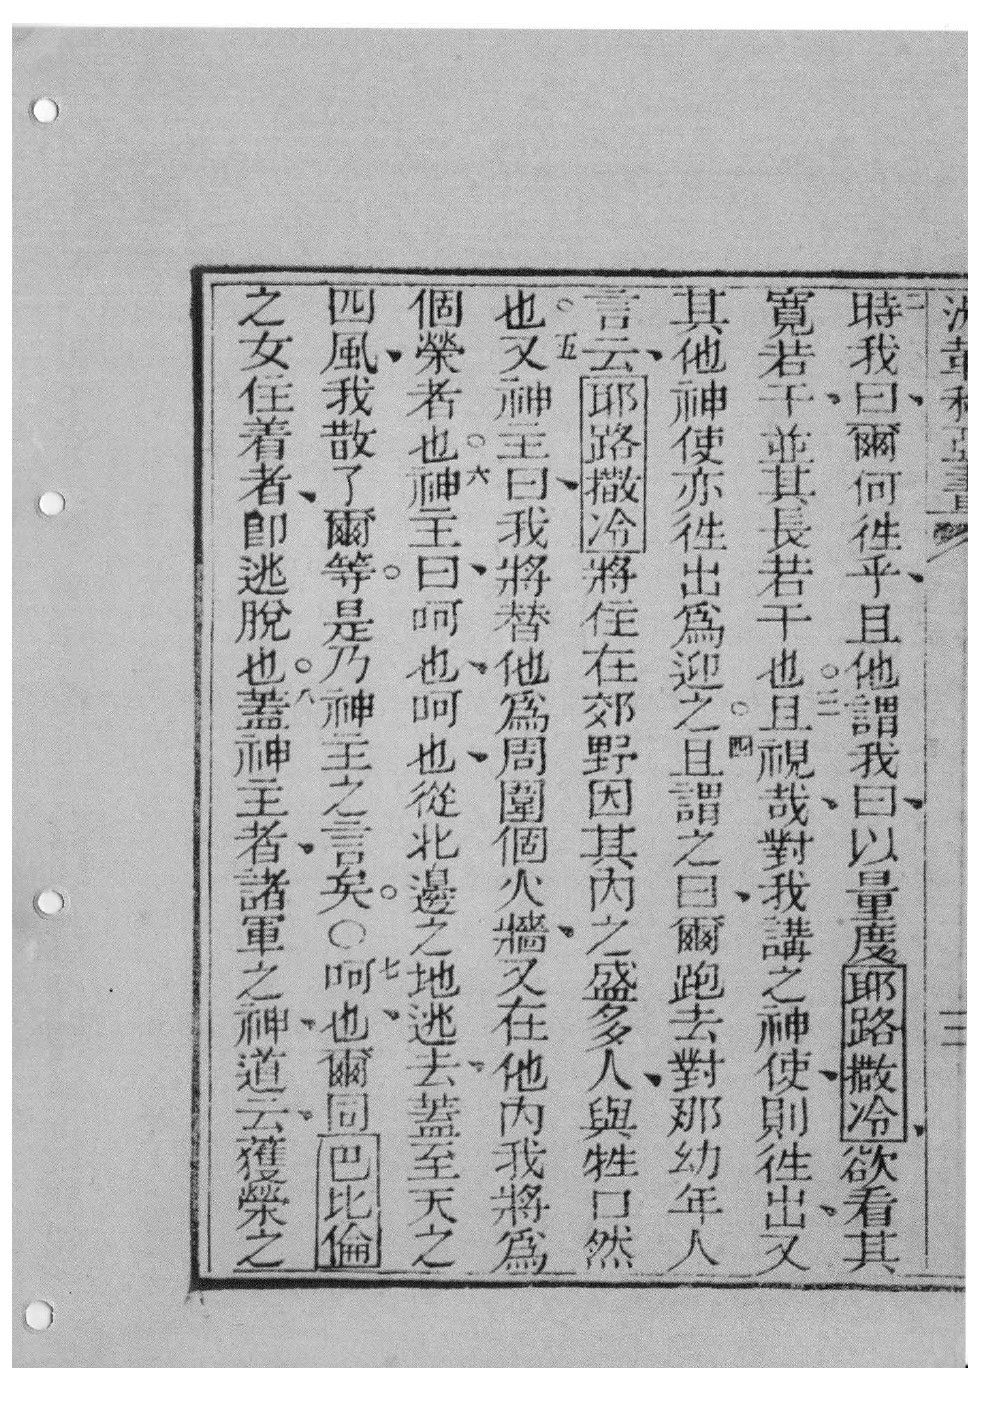 二時我曰、爾何徃乎、且他謂我曰、以量度耶路撒冷、欲看其
寬若干、並其長若干也。三且視哉、對我講之神使、則徃出、又
其他神使亦徃出爲迎之。四且謂之曰、爾跑去對那幼年人
言云、耶路撒冷將住在郊野因其內之盛多人、與牲口然
也。五又神主曰、我將替他爲周圍個火牆、又在他內我將爲
個榮者也。六神主曰、呵也、呵也、從北邊之地逃去、蓋至天之
四風、我散了爾等。是乃神主之言矣。〇七呵也、爾同巴比倫
之女住着者、卽逃脫也。八蓋神主者、諸軍之神、道云、獲榮之